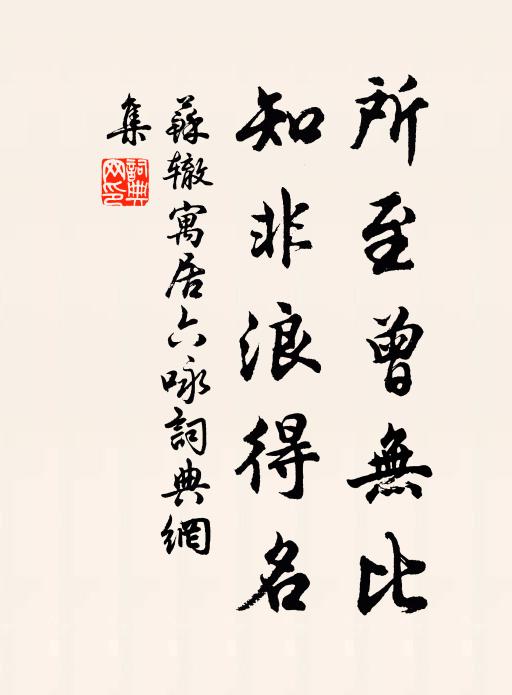 所至曾無比
知非浪得名
蘇辙寓居六咏詞典網
集
詞典
网印